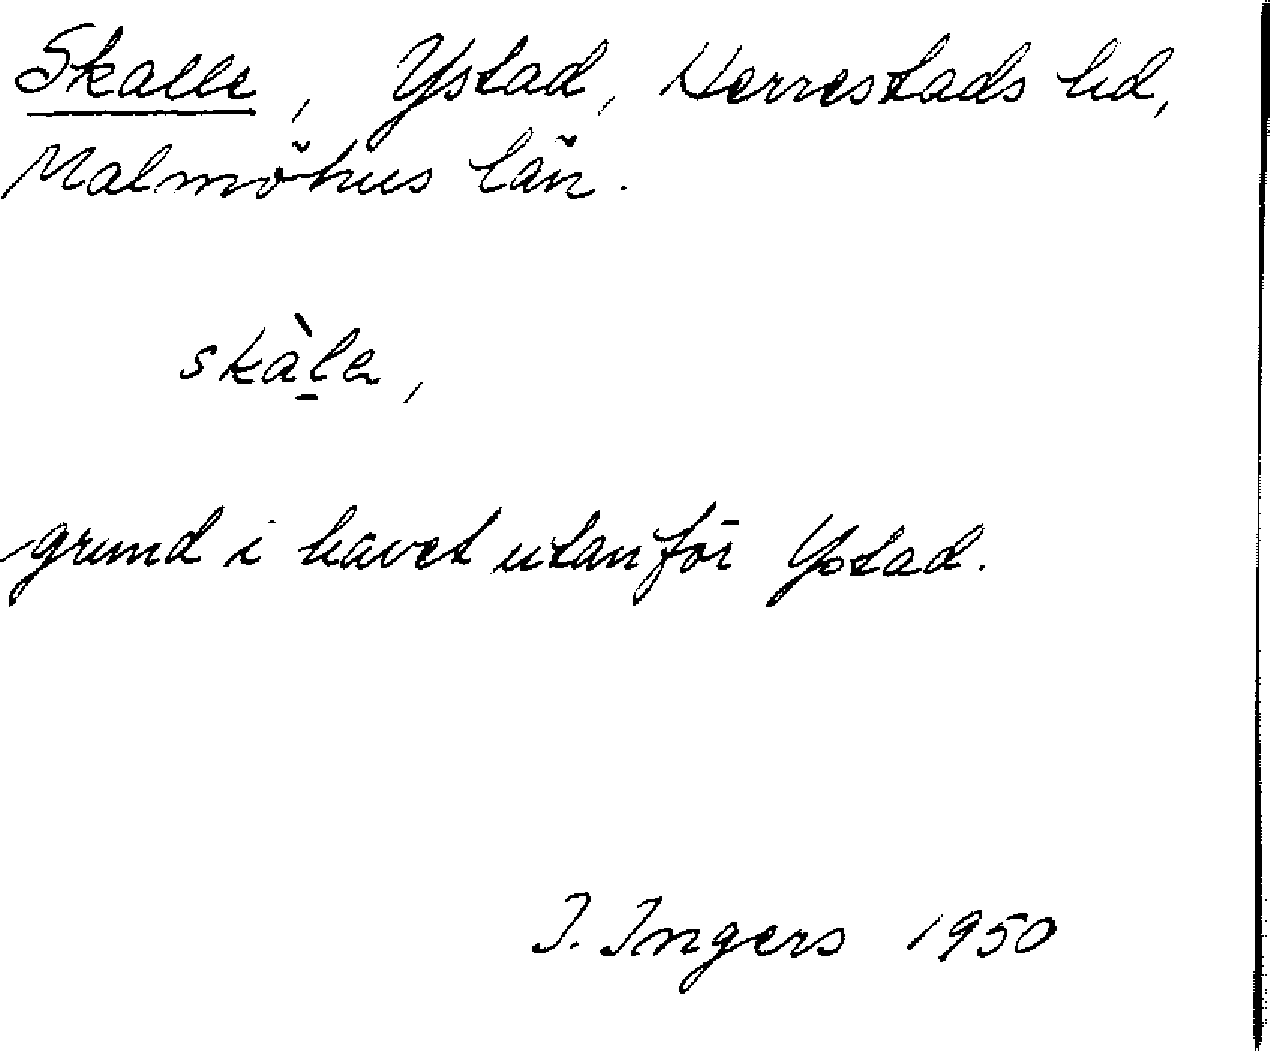 Skalle, Ystad, Herrestads hd,
Malmöhus län.
skàl̲a,
grund i havet utanför Ystad.
I. Ingers 1950